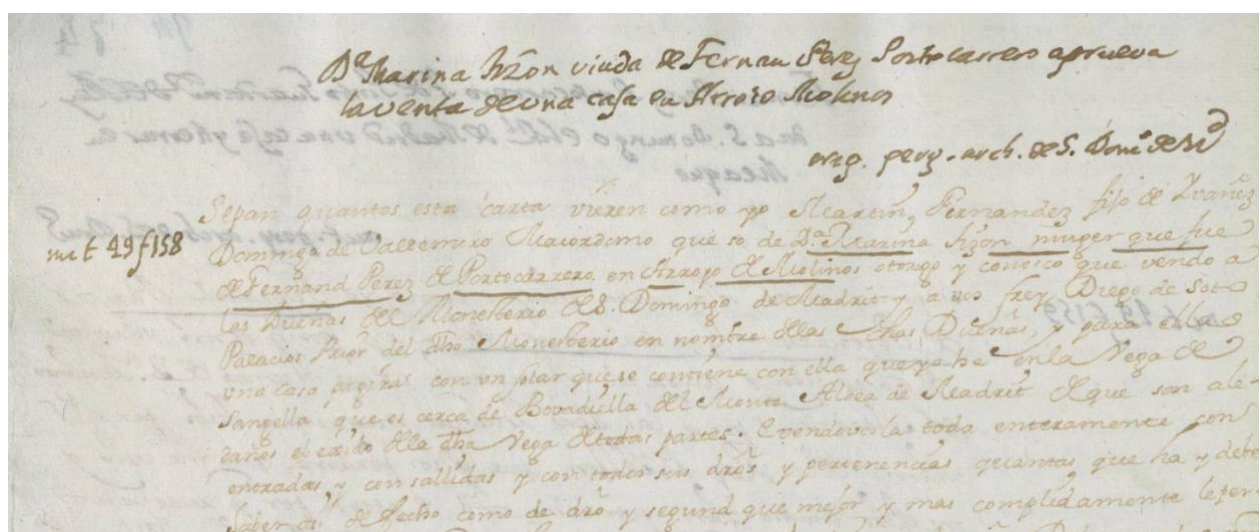 Dª Marina Afzón viuda de Fernan Perez Portocarrero aprueva
la venta de una casa en Arroio Molinos
orig. perg. arch. de S. Domº de Md
mc t 49 f 158
Sepan quantos esta carta vieren como yo Martin Fernandez fijo de Yvañez
Domingo de Maiordomo que so de Dª Marina muger que fue
de Fernand Perez de Portocarrero en Arroyo de Molinos otorgo y conosco que vendo a
las Dueñas del Monesterio de S. Domingo de Madrit y a vos frey Diego de Soto
Palacios Prior del dho Monesterio en nombre dellas dhas Dueñas, y para ellas
una casa pagiza con un solar que se contiene con ella que yo he en la Vega de
Sangella que es cerca de Bovadiella del Monte Aldea de Madrit de que son ale
daños el exido de la dha Vega de todas partes. E vendovosla toda enteramente con
entradas y con sallidas y con todos sus dros y pertenencias quantas que ha y debe
haber asi de fecho como de dro y segund que mejor y mas complidamente